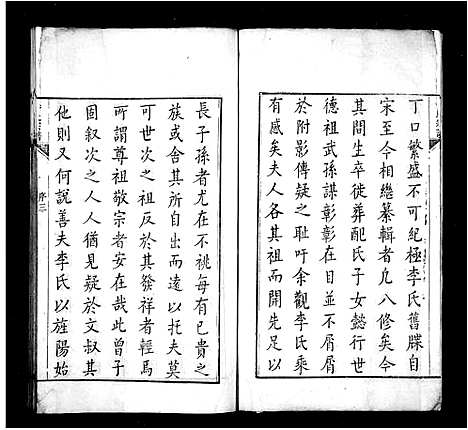 丁口繁盛不可紀極李氏舊牒自
宋至今相繼纂輯者凡八修矣今
其間生卒徙葬配氏子女懿行世
德祖武孫謀彰彰在目並不屑屑
於附影傳疑之耻吁余觀李氏乘
有感矣夫人各其祖而開先足以
長子孫者尤在不祧每有已貴之
族或舍其所自出而遠以托夫莫
可世次之祖反於其發祥者輕焉
所謂尊祖敬宗者安在哉此曾子
固叙次之人人猶見疑於文叔其
他則又何說善夫李氏以旌陽始
序三